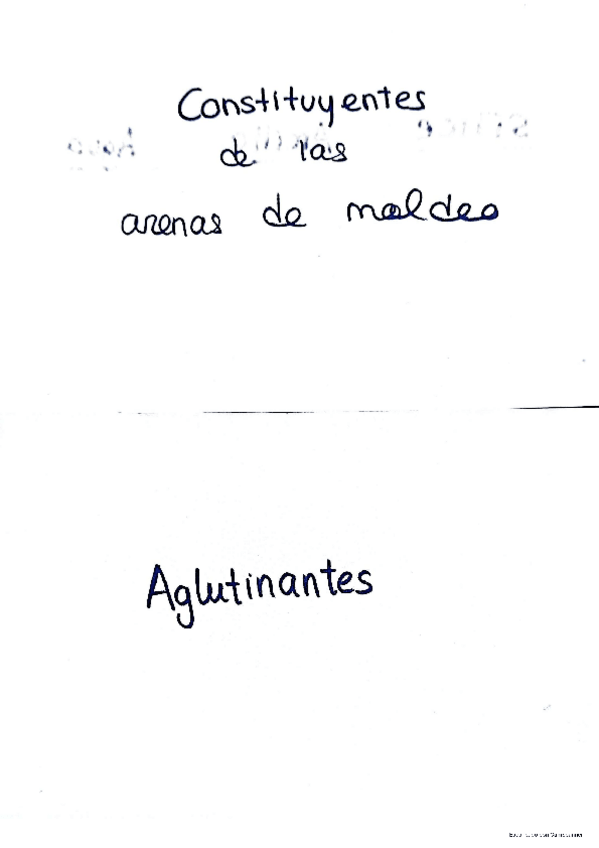 Constituyentes
de las
arenas de moldeo
Aglutinantes